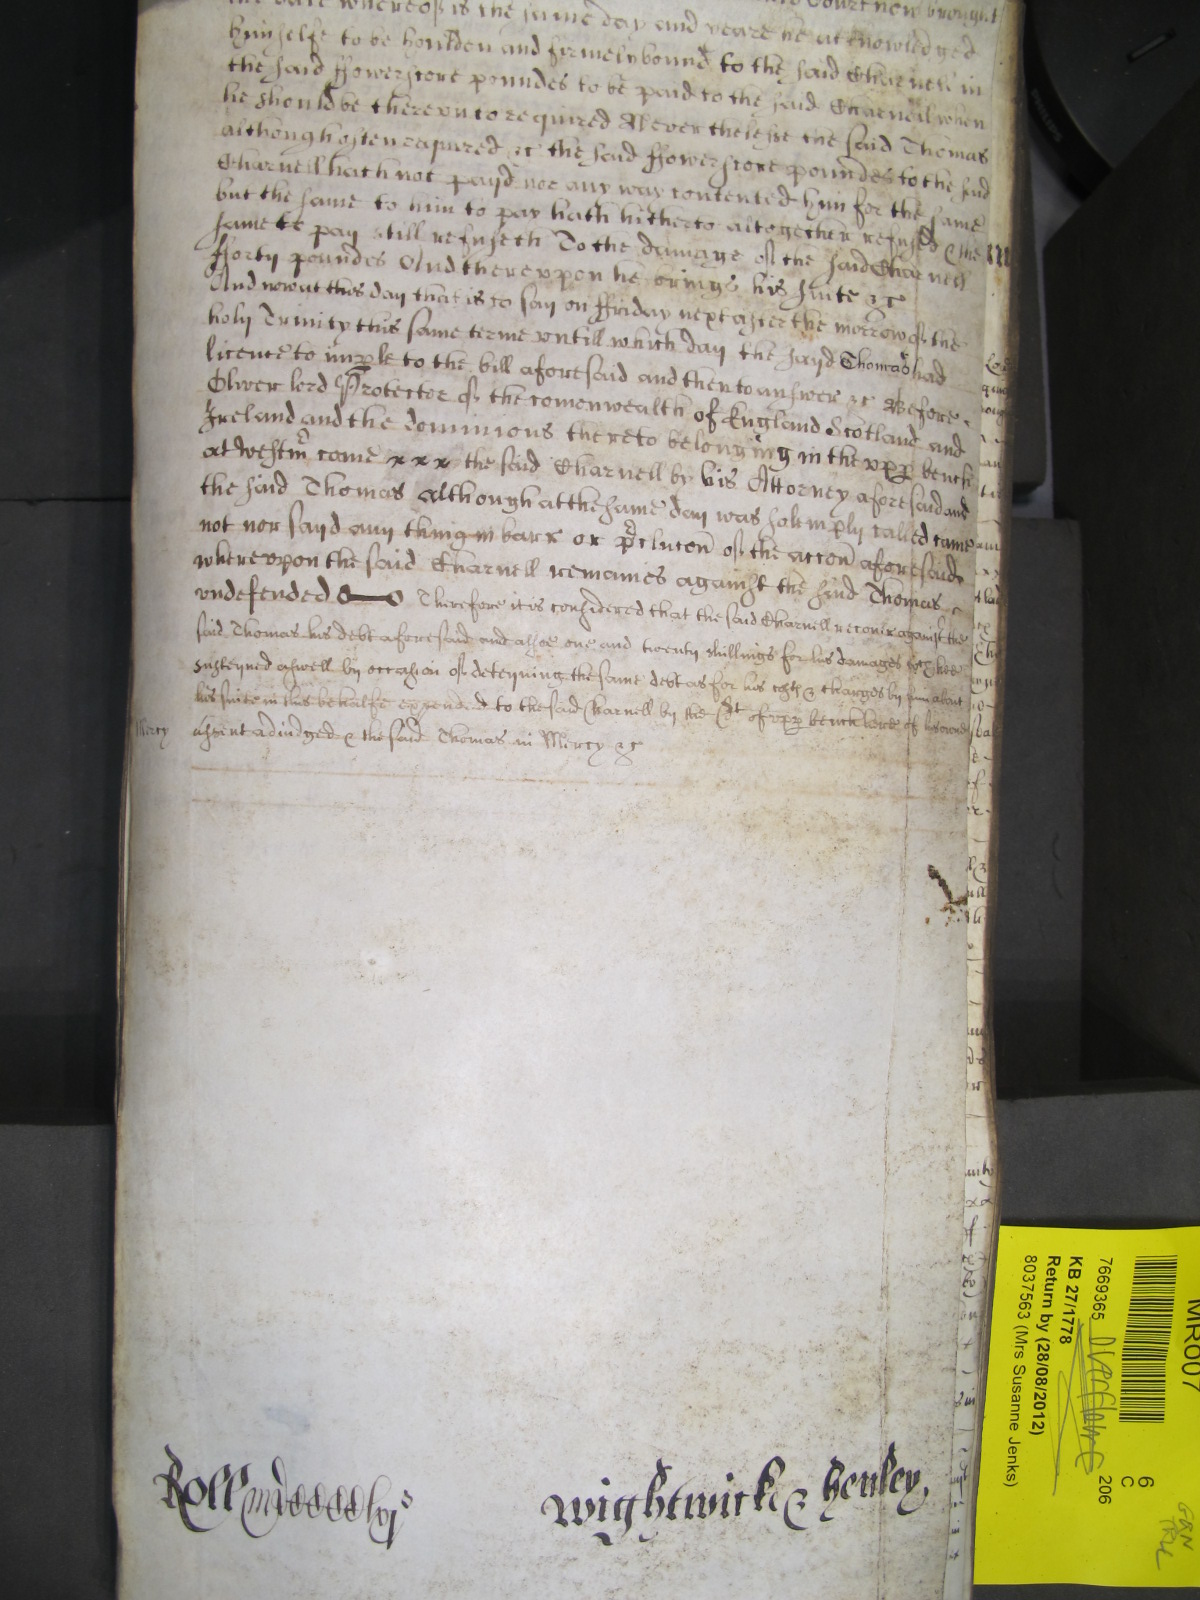 the date whereof is the same day and yeare he acknowledged
himselfe to be houlden and firmely bound to the said Charnell in
the said ffowerscore poundes to be paid to the said Charnell when
he should be therevnto required Neverthelesse the said Thomas
although often required &c the said ffowerscore poundes to the said
Charnell hath not payd nor any way contented him for the same
but the same to him to pay hath hitherto altogether refused & the
same to pay still refuseth To the damage of the said Charnell
fforty poundes And therevpon he brings his suite &c
And now at this day that is to say on ffriday next after the morrow of the
holy Trinity this same terme vntill which day the sayd Thomas had
licence to imple to the bill aforesaid and then to answer &c Before
Oliver lord Protector of the comonwealth of England Scotland and
Ireland and the dominions thereto belonging in the vpp bench
at Westm come xxx the said Charnell by his Attorney aforesaid and
the said Thomas although at the same day was solemply called came
not nor sayd any thing in barr or pclucon of the accon aforesaid
wherevpon the said Charnell remaines against the said Thomas
vndefended Therefore it is considered that the said Charnell recover against the
said Thomas his debt aforesaid and alsoe one and twenty shillings for his damages wch hee
susteyned aswell by occasion of deteyning the same debt as for his costs & charges by him about
his suite in his behalfe expended to the said Charnell by the Ct of vpp bench here of his owne
Mercy
assent adiudged & the said Thomas in Mercy &c
Roll mdcccclvjs
Wightwicke & Henley
MR007
6
C
206
7669365
Overflow
KB 27/1778
Return by (28/08/2012)
8037563 (Mrs Susanne Jenks)
PHILIPS